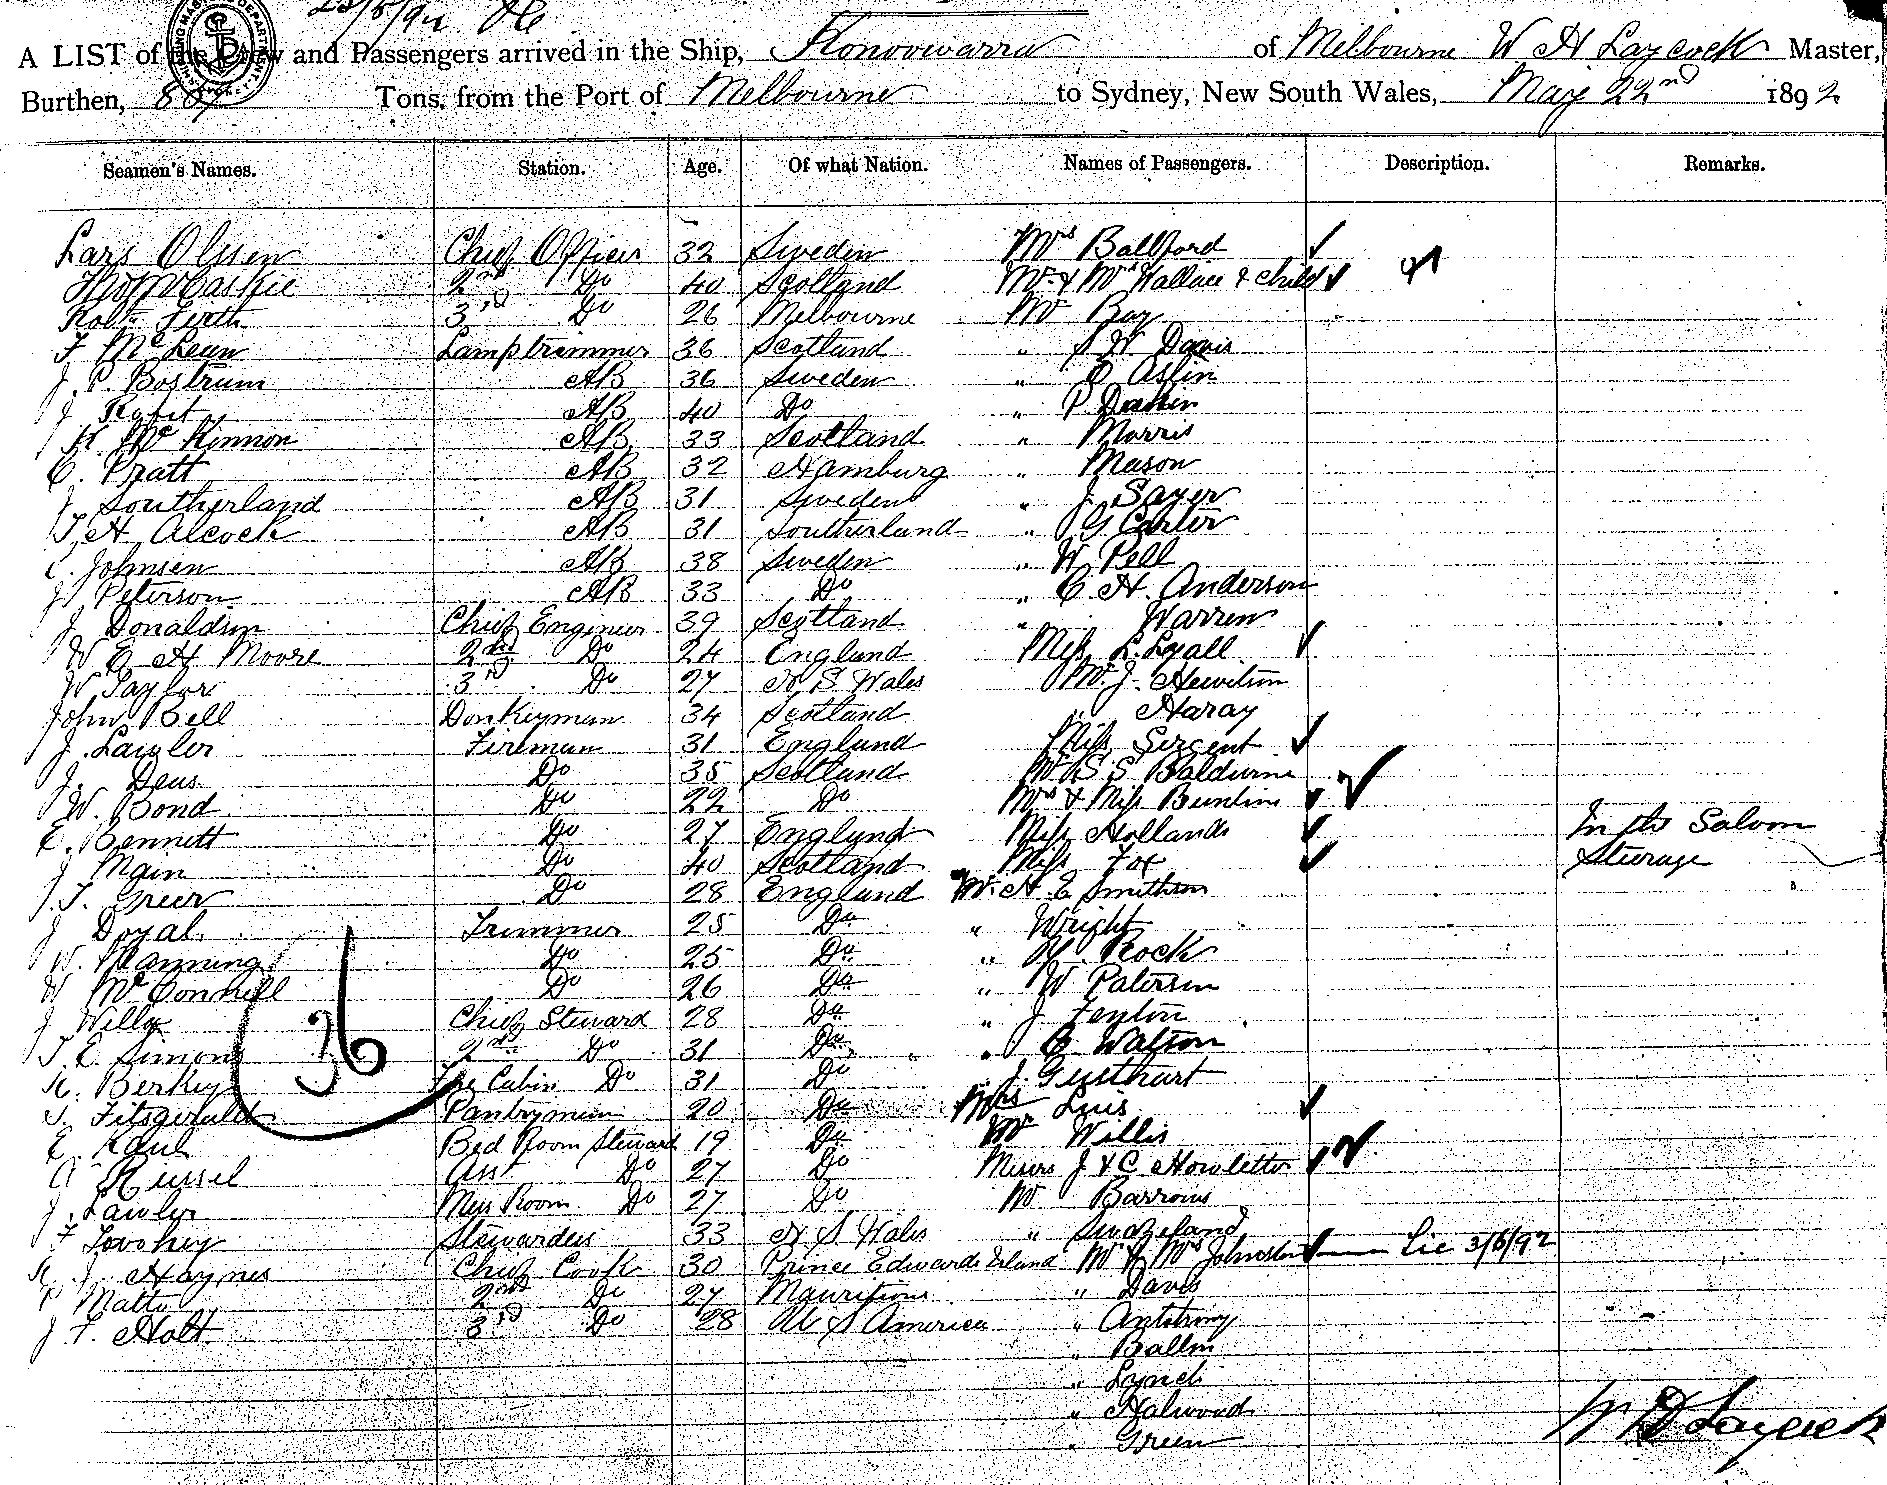 23/5/92
A LIST of the Crew and Passengers arrived in the Ship, Konoowarra of Melbourne W H Laycock Master,
Burthen, Tons, from the Port of Melbourne to Sydney, New South Wales, May 22nd 1892
Seamen's Names. Station. Age. Of what Nation. Names of Passengers. Description. Remarks.
Lars Olssen Chief Officer 32 Sweden Mrs Ballford
2nd Do 40 Scotland Mr & Mrs Wallace & Child
Robt Firth 3rd Do 26 Melbourne Mr Bay
F McLean Lamptrimmer 36 Scotland " S W Davis
J. P. Bostrum AB 36 Sweden " C Aslin
J AB 40 Do " P
H. McKinnon AB 33 Scotland " Morris
C. Pratt AB 32 Hamburg " Mason
J Southerland AB 31 Sweden " J Sayer
T. H Alcock AB 31 Southerland " G Carter
C. Johnsen AB 38 Sweden " W Pell
J Peterson AB 33 Do " C H Anderson
J Donaldson Chief Engineer 39 Scotland " Warren
W E H Moore 2nd Do 24 England Miss L. Lyall
W Taylor 3rd Do 27 N S Wales Mr J. Hewitson
John Bell Donkeyman 34 Scotland " Haray
J. Lawler Fireman 31 England Miss Sergent
J. Deus Do 35 Scotland Mr S S
W. Bond Do 22 Do Mrs & Miss Buntin
E. Bennett Do 27 England Miss Hollands In the Saloon
J Main Do 40 Scotland Miss Fox Steerage
J. T. Greer Do 28 England Mr H E Smithson
J Doyal Trimmer 25 Do " Wright
W. Manning Do 25 Do " Rock
W McConnell Do 26 Do " W Paterson
J Willy Chief Steward 28 Do " J Fenton
T. E. Simons 2nd Do 31 Do " C Watson
H. Berkey Fore Cabin Do 31 Do " J.
36
T. Fitzgerald Pantryman 20 Do Mrs Luis
E. Kaul Bed Room Steward 19 Do Mr Willis
A Russel Asst Do 27 Do Messrs J & C Howletts
J. Lawler Mess Room Do 27 Do Mr Barrows
F Stewardess 33 N S Wales " Swazeland
H J Haynes Chief Cook 30 Prince Edwards Island Mr & Mrs Johnston Lic 3/6/92
P Matty 2nd Do 27 Mauritious " Davis
J F. Holt 3rd Do 28 U S America " Antstrony
" Ballin
" Lynch
" Halwood
" Green
W H Laycock